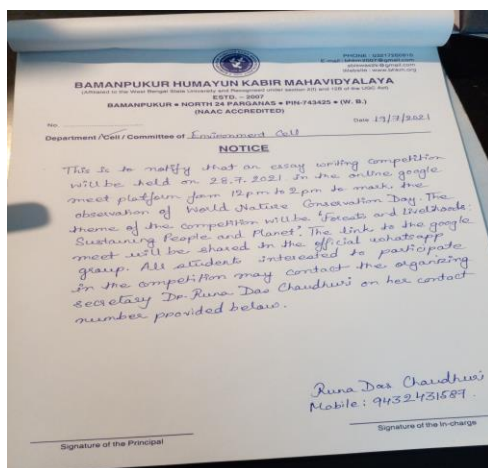 PHONE : 03217260810
E-mail: bhkm2007@gmail.com
Website : www.bhkm.org
BAMANPUKUR HUMAYUN KABIR MAHAVIDYALAYA
(Affiliated to the West Bengal State University and Recognised under Section 2(f) and 12B of the UGC Act)
ESTD. - 2007
BAMANPUKUR ● NORTH 24 PARGANAS ● PIN-743425 ● (W. B.)
(NAAC ACCREDITED)
No.
Date 19/7/2021
Department /Cell / Committee of Environment Cell
NOTICE
This is to notify that an essay writing competition
will be held on 28.7.2021 in the online google
meet platform form 12pm to 2pm to mark the
observation of World Nature Conservation Day. The
theme of the competition will be 'Forests and Livelihoods:
Sustaining People and Planet'. The link to the google
meet will be shared in the official whatsapp
group. All students interested to participate
in the competition may contact the organizing
secretary Dr. Runa Das Chaudhuri on her contact
number provided below.
Runa Das Chaudhuri
Mobile: 9432431589.
Signature of the Principal
Signature of the In-charge